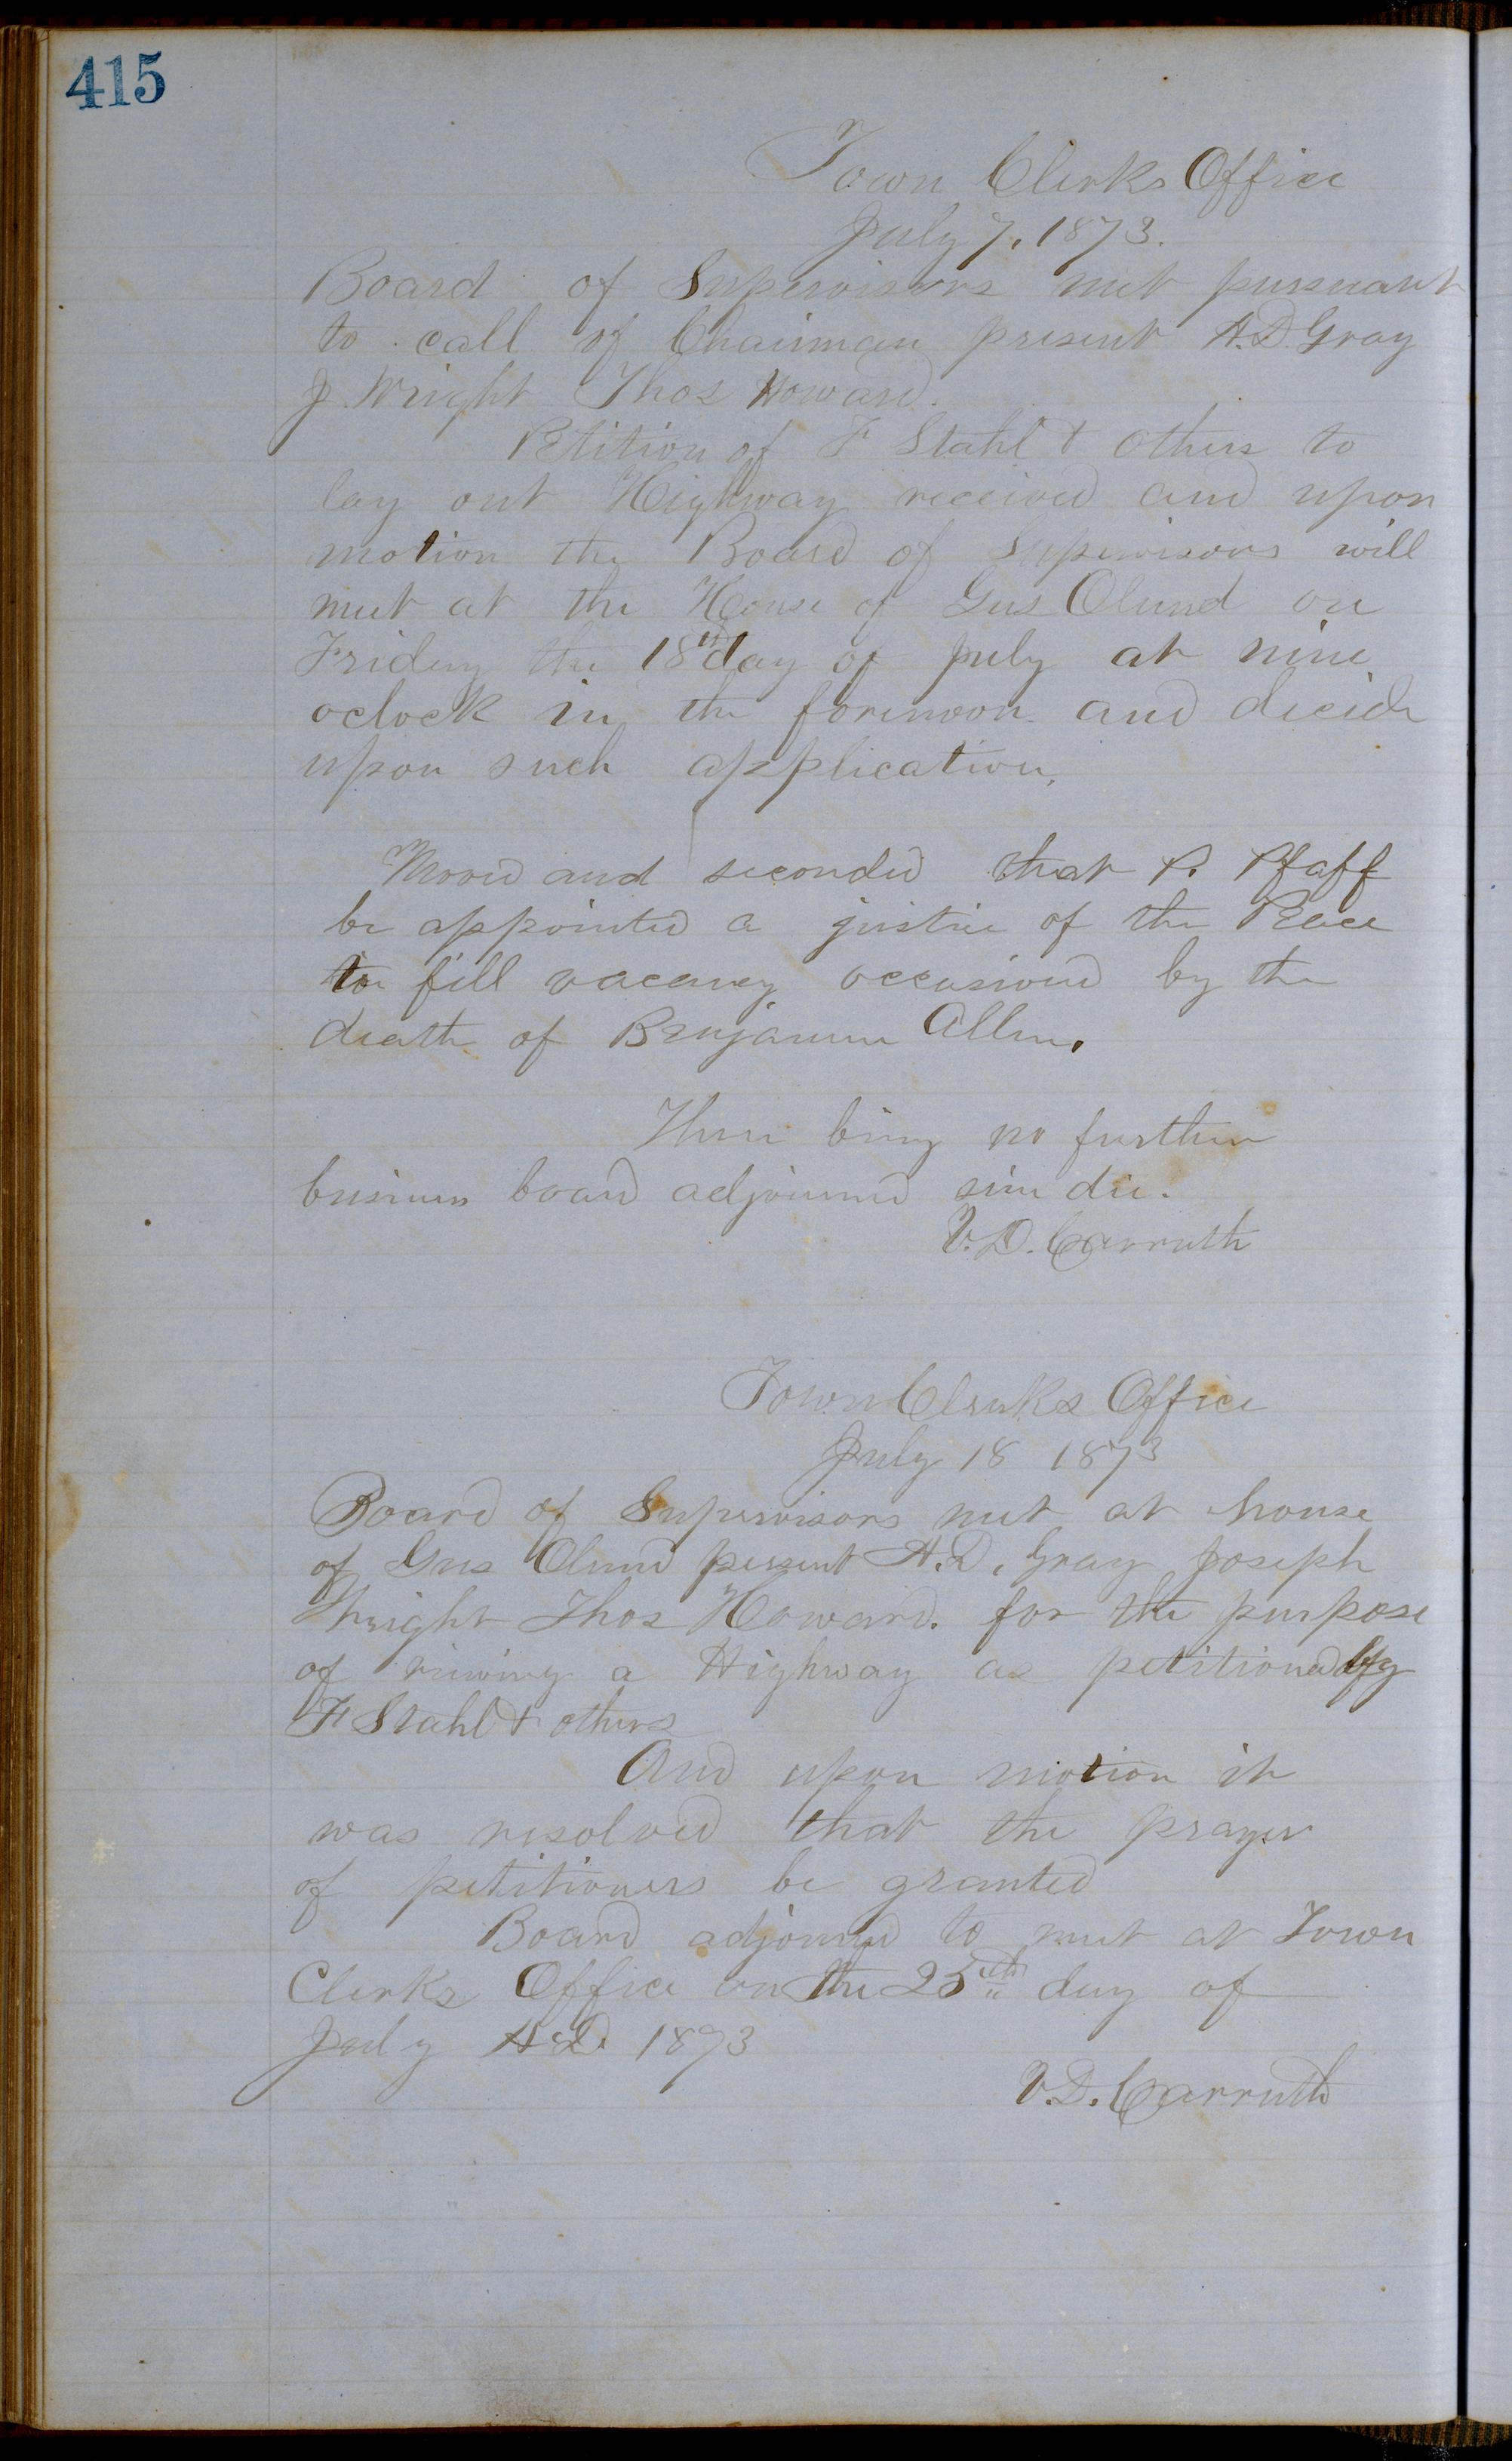 415
Town Clerks Office
July 7, 1873.
Board of Supervisors met pursuant
to call of Chairman present A.D. Gray
J. Wright Thos Howard.
Petition of F Stahl & others to
lay out Highway received and upon
motion the Board of Supervisors will
meet at the House of Gus Olund on
Friday the 18th day of July at nine
oclock in the forenoon and decide
upon such application.
Moved and seconded that P. Pfaff
be appointed a justice of the Peace
to fill vacancy occasioned by the
death of Benjamin Allen.
There being no further
business board adjourned sine die.
V.D. Carruth
Town Clerks Office
July 18 1873
Board of Supervisors met at house
of Gus Olund present A.D. Gray Joseph
Wright Thos Howard. for the purpose
of viewing a Highway as petitioned by
F Stahl & others
And upon motion it
was resolved that the prayer
of petitioners be granted
Board adjourned to meet at Town
Clerks Office on the 25th day of
July A.D. 1873
V.D. Carruth